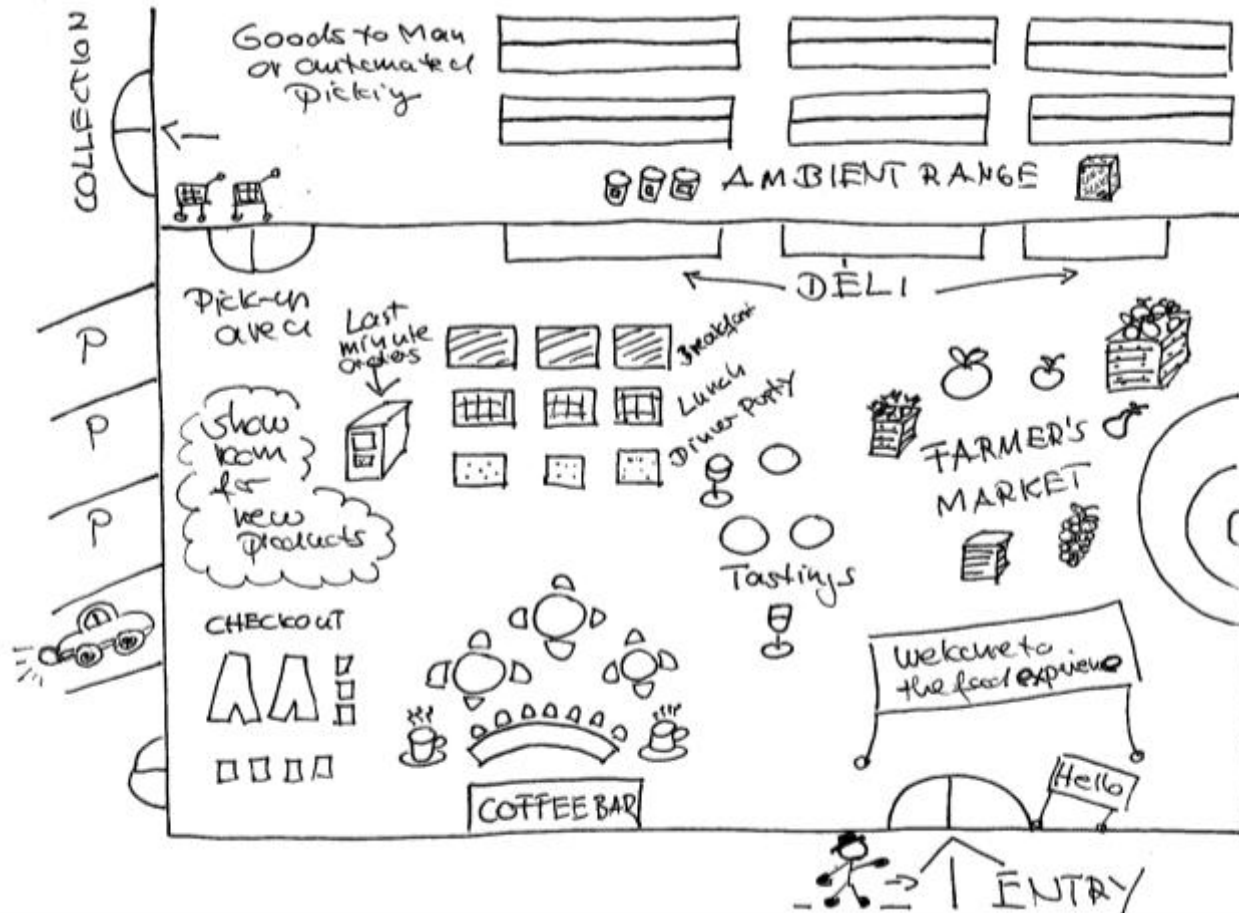 COLLECTION
Goods to Man
or automated
Picking
AMBIENT RANGE
DELI
Pick-up
area
Last
minute
orders
Breakfast
Lunch
Dinner Party
P
P
P
show
room
for
new
products
FARMER'S
MARKET
Tastings
CHECKOUT
Welcome to
the food experience
Hello
COFFEE BAR
ENTRY